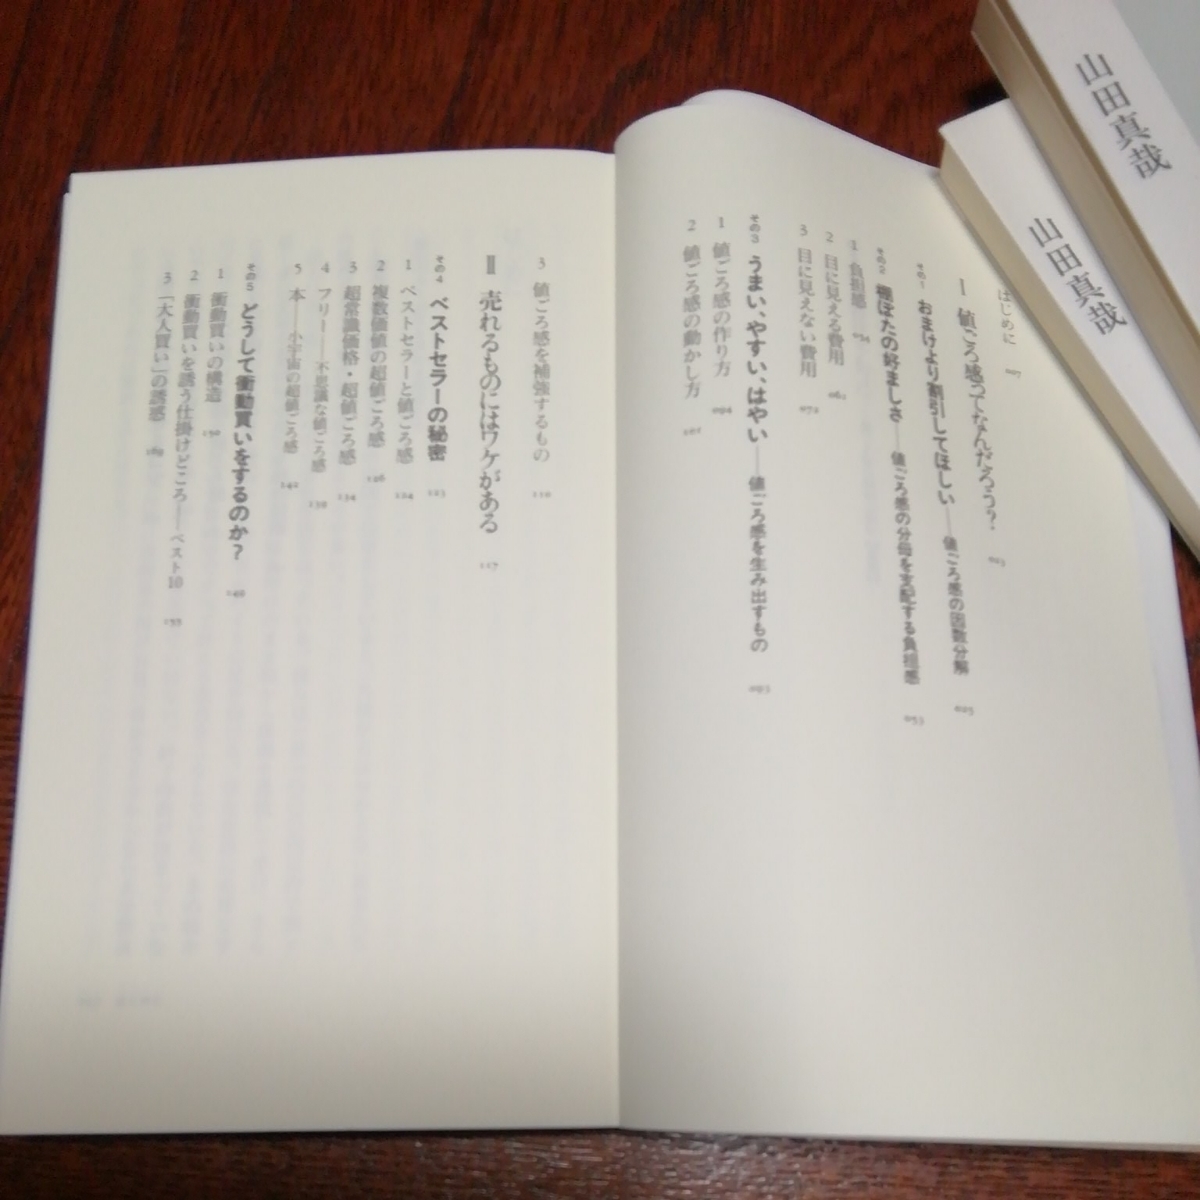 はじめに 007
Ⅰ 値ごろ感ってなんだろう? 023
その1 おまけより割引してほしい——値ごろ感の因数分解 025
その2 棚ぼたの好ましさ——値ごろ感の分母を支配する負担感 053
1 負担感 054
2 目に見える費用 062
3 目に見えない費用 072
その3 うまい、やすい、はやい——値ごろ感を生み出すもの 093
1 値ごろ感の作り方 094
2 値ごろ感の動かし方
3 値ごろ感を補強するもの 110
Ⅱ 売れるものにはワケがある 117
その4 ベストセラーの秘密 123
1 ベストセラーと値ごろ感 124
2 複数価値の超値ごろ感 126
3 超常識価格・超値ごろ感 134
4 フリー——不思議な値ごろ感 139
5 本——小宇宙の超値ごろ感 142
その5 どうして衝動買いをするのか? 149
1 衝動買いの構造 150
2 衝動買いを誘う仕掛けどころ——ベスト10 155
3 「大人買い」の誘惑 169
山田真哉
山田真哉